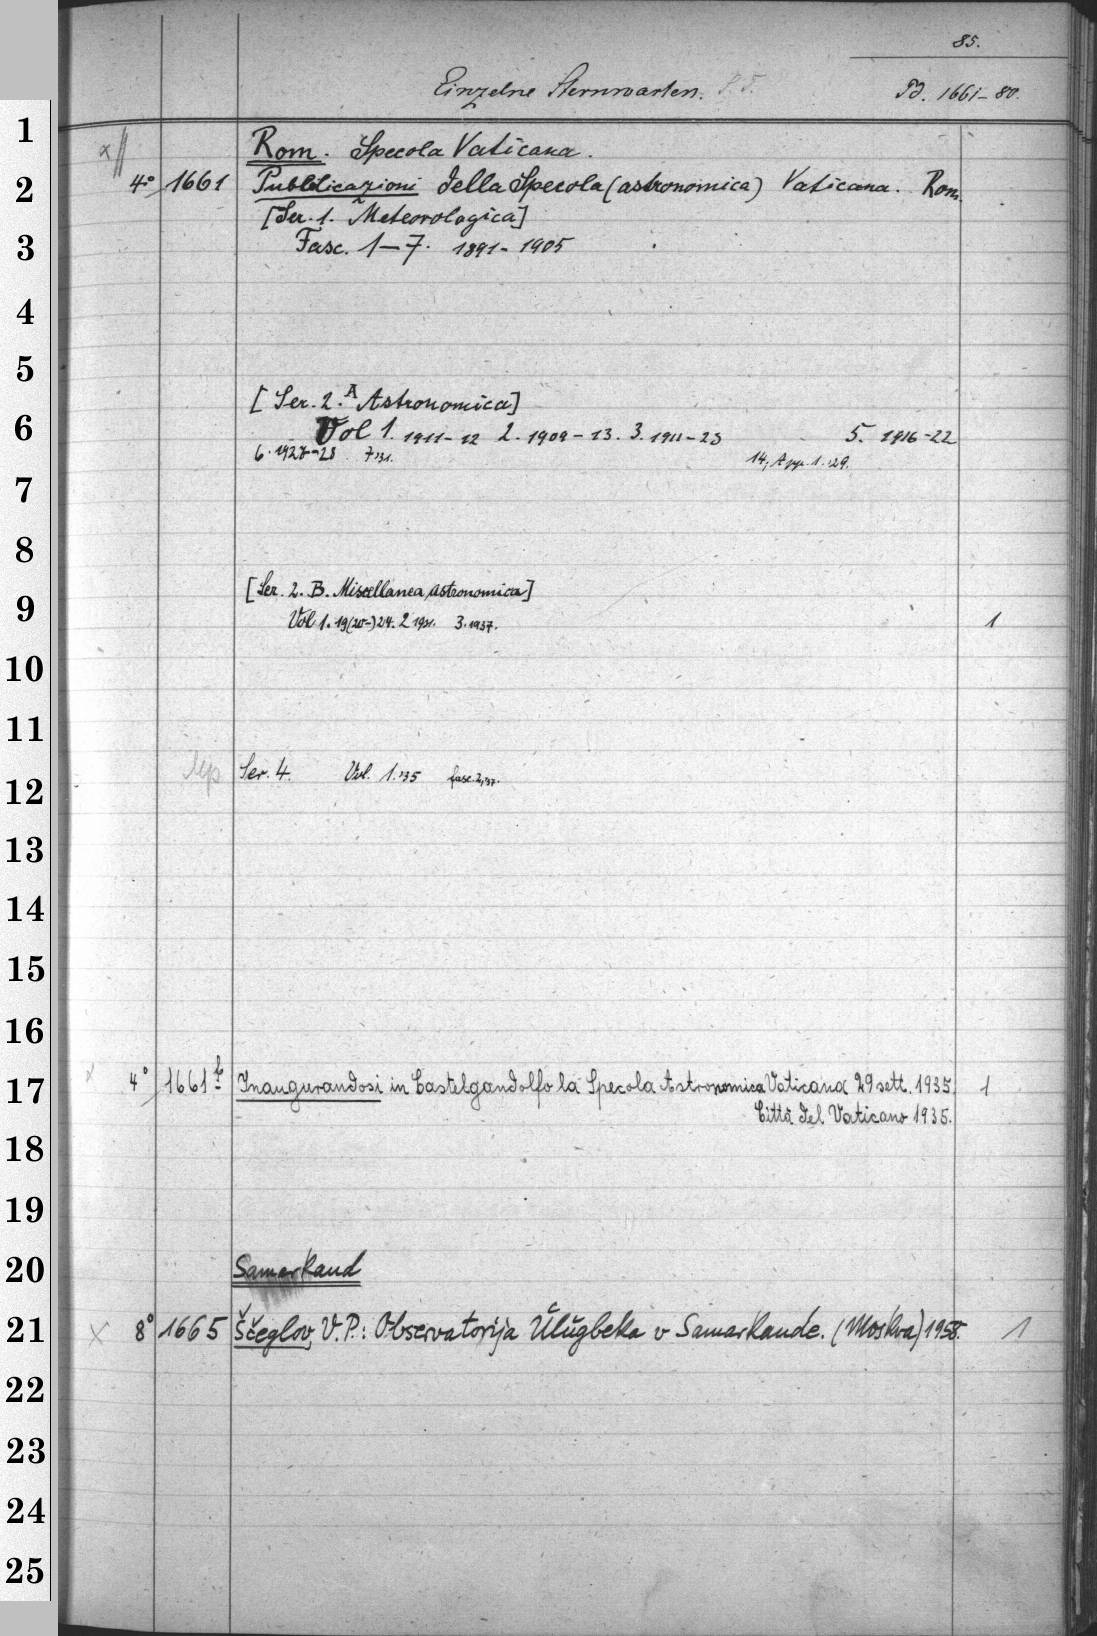 85.
Einzelne Sternwarten.
Pd. 1661-80.
1
Rom. Specola Vaticana.
2
4° 1661 Pubblicazioni della Specola (astronomica) Vaticana. Rom.
[Ser. 1. Meteorologica]
3
Fasc. 1-7. 1891-1905
4
5
[Ser. 2. A Astronomica]
6
Vol 1. 1911-12 2. 1909-13. 3. 1911-23 5. 1916-22
6. 1927-28 7 '31. 14, App. 1. '29.
7
8
[Ser. 2. B. Miscellanea astronomica]
9
Vol 1. 19(20-)24. 2 1931. 3. 1937. 1
10
11
Ser. 4. Vol. 1. '35 fasc. 2, '37.
12
13
14
15
16
17
4° 1661 b Inaugurandosi in Castelgandolfo la Specola Astronomica Vaticana 29 sett. 1935. 1
Città del Vaticano 1935.
18
19
20
Samarkand
21
x 8° 1665 Ščeglov, V. P.: Observatorija Ulugbeka v Samarkande. (Moskva) 1958. 1
22
23
24
25